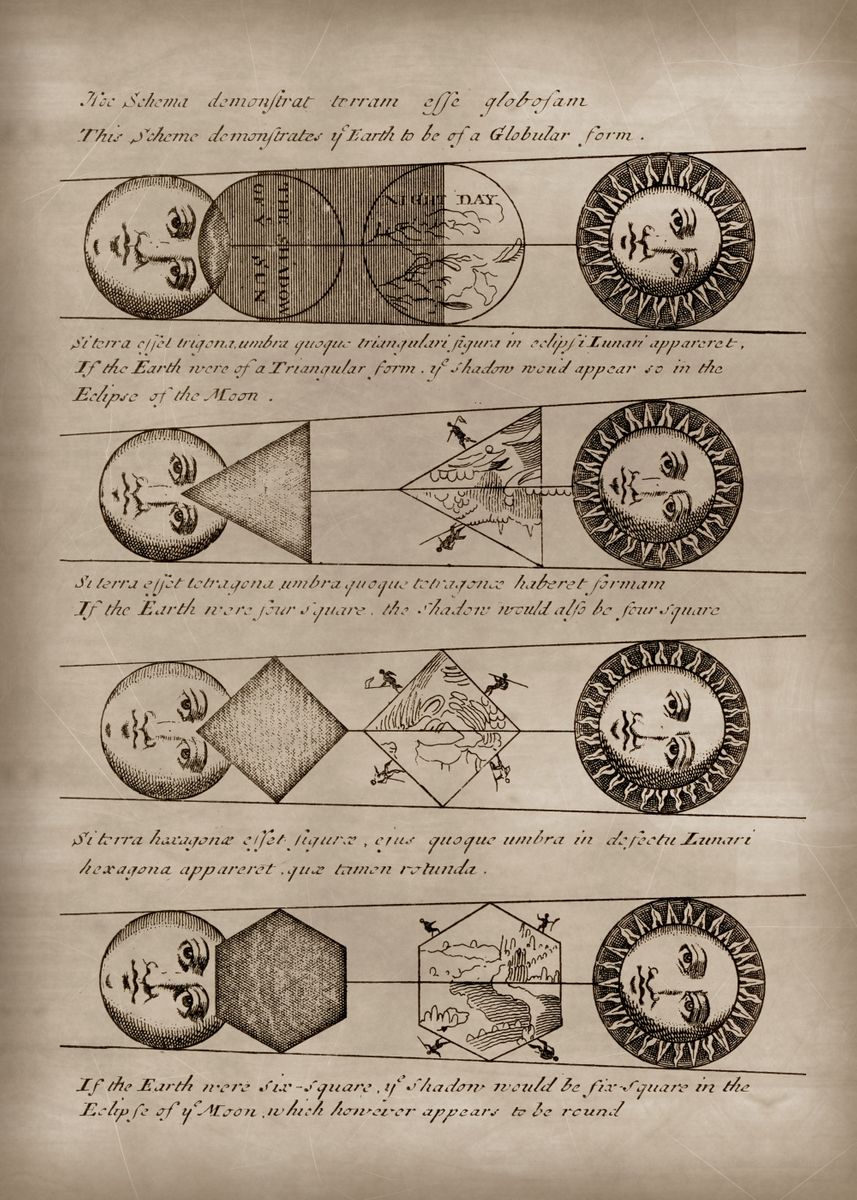 Hoc Schema demonſtrat terram eſſe globoſam
This Scheme demonſtrates yͤ Earth to be of a Globular form .
THE SHADOW
OF Yͤ SUN
NIGHT DAY
Si terra eſſet trigona, umbra quoque triangulari figura in eclipſi Lunari appareret ,
If the Earth were of a Triangular form , yͤ shadow woud appear so in the
Eclipse of the Moon .
Si terra eſſet tetragona umbra quoque tetragonæ haberet formam
If the Earth were four square , the shadow would alſo be four square
Si terra haxagonæ eſſet figuræ , ejus quoque umbra in defectu Lunari
hexagona appareret , quæ tamen rotunda .
If the Earth were six-square , yͤ shadow would be ſix-square in the
Eclipſe of yͤ Moon , which however appears to be round